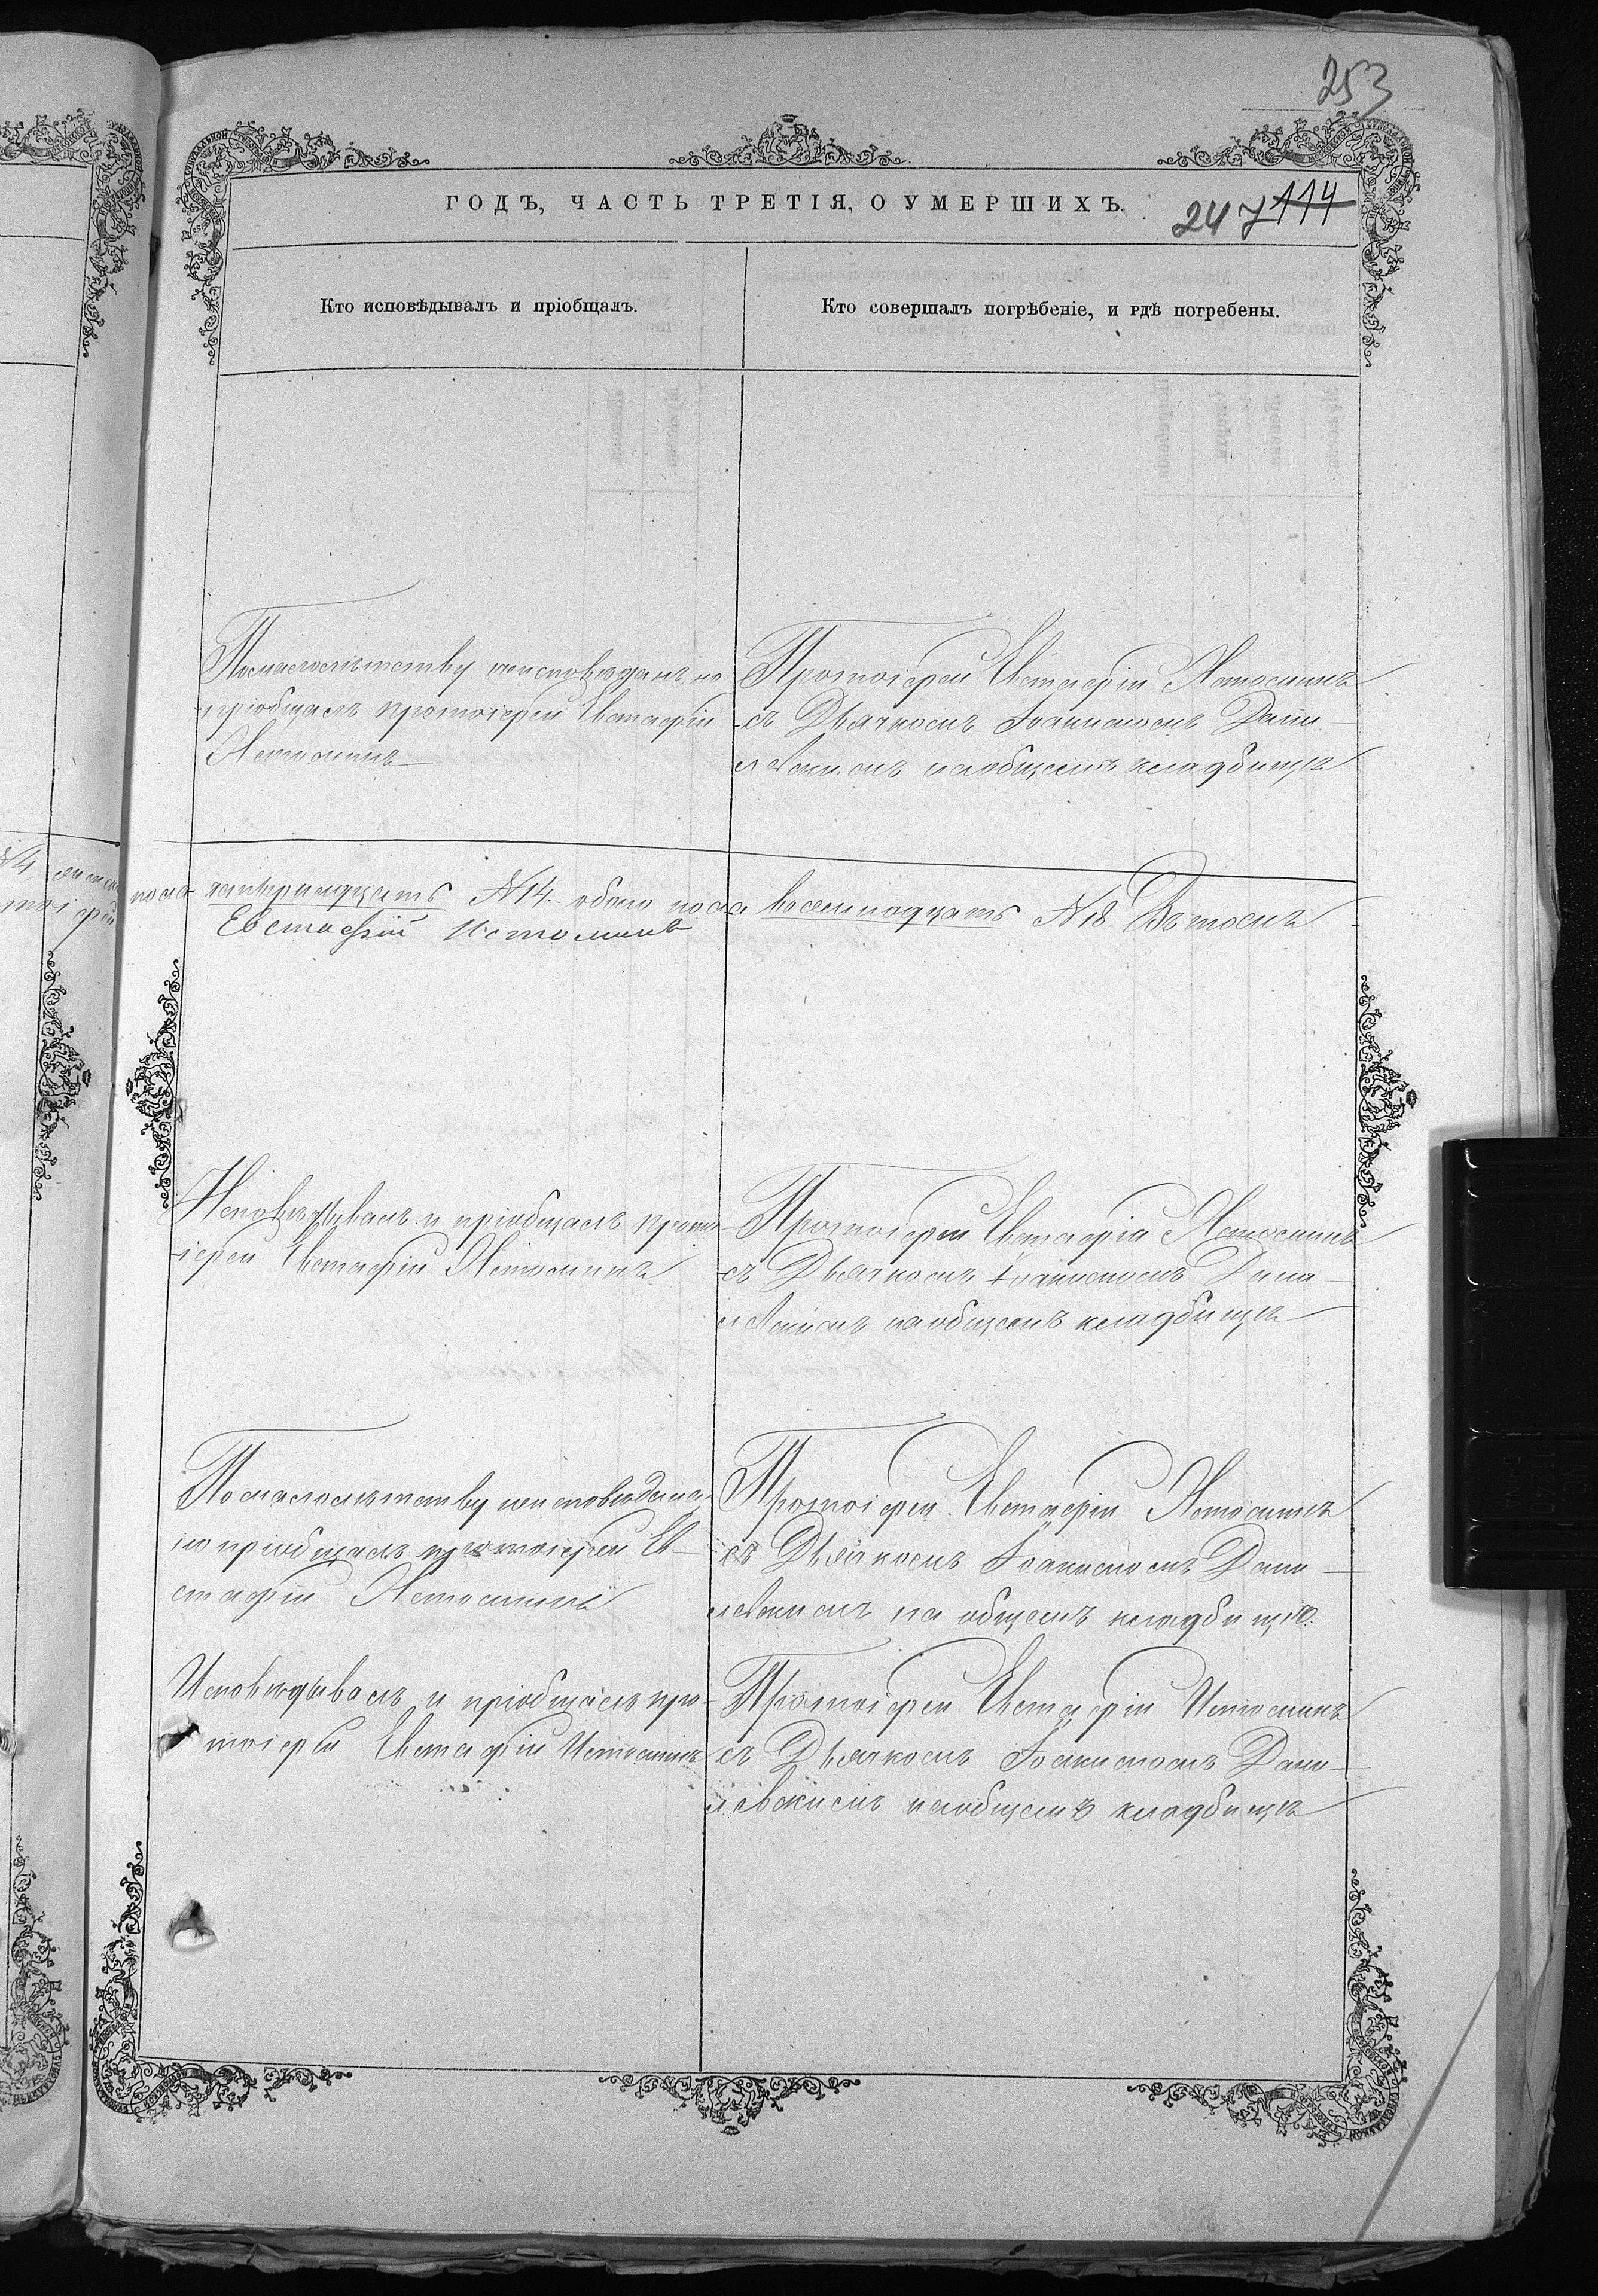 253
ГОДЪ, ЧАСТЬ ТРЕТІЯ, О УМЕРШИХЪ.
247 114
Кто исповѣдывалъ и пріобщалъ.
Кто совершалъ погрѣбеніе, и гдѣ погребены.
По малолѣтству неисповѣданъ, но
пріобщалъ протоіерей Евстафій
Истоминъ
Протоіерей Евстафій Истоминъ
съ Дьячкомъ Іоакимомъ Дани
левскимъ на общемъ кладбищѣ
пола четырнадцать N 14. обоего пола восемнадцать N 18. Въ томъ
Евстафій Истоминъ
Исповѣдывалъ и пріобщалъ прото
іерей Евстафій Истоминъ
Протоіерей Евстафій Истоминъ
съ Дьячкомъ Іоакимомъ Дани
левскимъ на общемъ кладбищѣ
По малолѣтству неисповѣдана
но пріобщалъ протоіерей Ев
стафій Истоминъ
Протоіерей Евстафій Истоминъ
съ Дьячкомъ Іоакимомъ Дани
левскимъ на общемъ кладбищѣ
Исповѣдывалъ и пріобщалъ про
тоіерей Евстафій Истоминъ
Протоіерей Евстафій Истоминъ
съ Дьячкомъ Іоакимомъ Дани
левскимъ на общемъ кладбищѣ